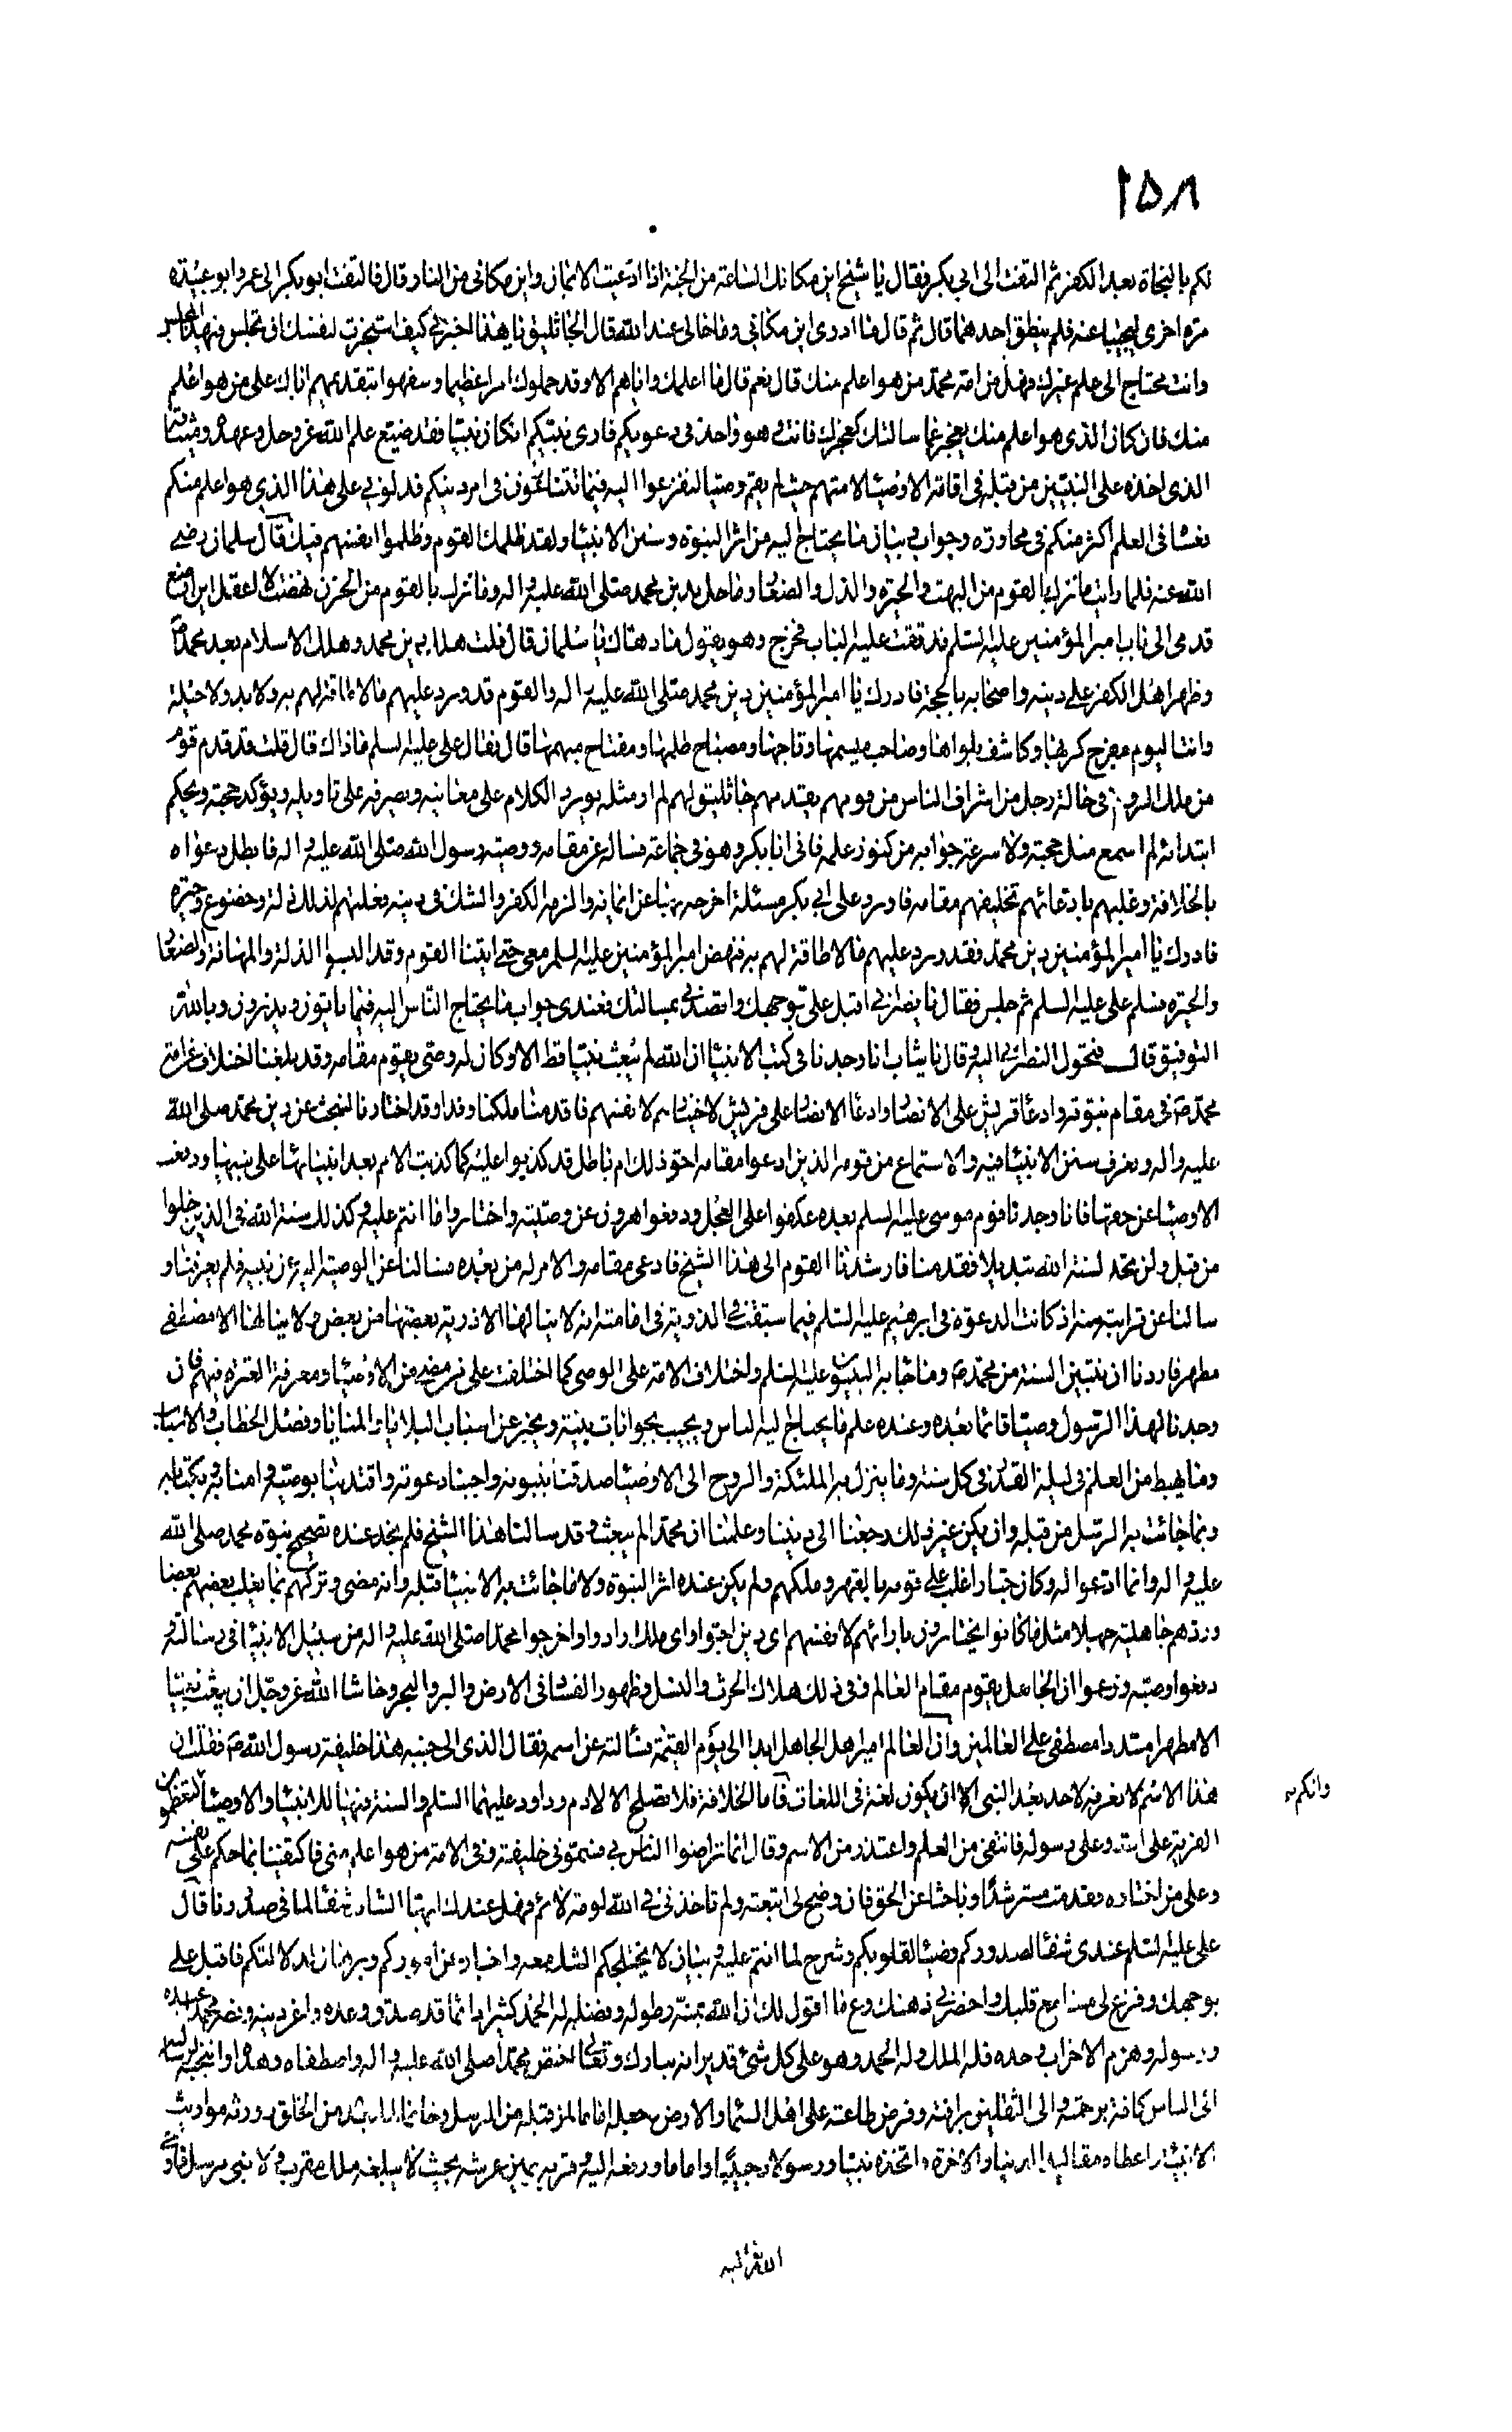 ٢٥٨
لكم بالنجاة بعد الكفر ثم التفت الى ابي بكر فقال يا شيخ اين مكانك الساعة من الجنة اذا ادعيت الايمان واين مكاني من النار قال فالتفت ابو بكر الى عمر وابو عبيدة
مرة اخرى ليجيبا عنه فلم ينطق احدهما قال ثم قال ما ادرى اين مكاني وما حالي عند الله قال الجاثليق يا هذا اخبرني كيف استجزت لنفسك ان تجلس في هذا المجلس
وانت محتاج الى علم غيرك فهل من امة محمد من هو اعلم منك قال نعم قال ما اعلمك واياهم الا وقد حملوك امرا عظيما وسفهوا بتقديمهم اياك على من هو اعلم
منك فان كان الذى هو اعلم منك يعجز عما سالتك كعجزك فانت وهو واحد في دعويكم فارى نبيكم ان كان نبيا فقد ضيع علم الله عز وجل وعهده وميثاقه
الذى اخذه على النبيين من قبله في اقامة الاوصياء لامتهم حيث لم يقم وصيا لتفزعوا اليه فيما تتنازعون في امر دينكم فدلوني على هذا الذي هو اعلم منكم
فعساه في العلم اكثر منكم في محاورة وجواب وبيان ما يحتاج اليه من اثر النبوة وسنن الانبياء ولقد ظلمك القوم وظلموا انفسهم فيك قال سلمان رضي
الله عنه فلما رايت ما نزل بالقوم من البهت والحيرة والذل والصغار وما حل بدين محمد صلى الله عليه واله وما نزل بالقوم من الحزن نهضت لا اعقل اين اضع
قدمى الى باب امير المؤمنين عليه السلم فدققت عليه الباب فخرج وهو يقول ما دهاك يا سلمان قال قلت هلك دين محمد وهلك الاسلام بعد محمد ص
وظهر اهل الكفر على دينه واصحابه بالحجة فادرك يا امير المؤمنين دين محمد صلى الله عليه واله والقوم قد ورد عليهم ما لا طاقة لهم به ولا بد ولا حيلة
وانت اليوم مفرج كربها وكاشف بلواها وصاحب ميسمها وتاجها ومصباح ظلمها ومفتاح مبهمها قال فقال علي عليه السلم ما ذاك قال قلت قد قدم قوم
من ملك الروم في مائة رجل من اشراف الناس من قومهم يقدمهم جاثليق لهم لم ار مثله يورد الكلام على معانيه ويصرفه على تاويله ويؤكد حجته ويحكم
ابتدائه لم اسمع مثل حجته ولا سرعة جوابه من كنوز علمه فاتى ابا بكر وهو في جماعة فساله عن مقامه ووصية رسول الله صلى الله عليه واله فابطل دعواه
بالخلافة وغلبهم بادعائهم تخليفهم مقامه فاورد على ابي بكر مسئلة اخرجه بها عن ايمانه والزمه الكفر والشك في دينه فعلتهم لذلك ذلة وخضوع وحيرة
فادرك يا امير المؤمنين دين محمد فقد ورد عليهم ما لا طاقة لهم به فنهض امير المؤمنين عليه السلم معى حتى اتينا القوم وقد البسوا الذلة والمهانة والصغار
والحيرة فسلم علي عليه السلم ثم جلس فقال يا نصراني اقبل على بوجهك واقصدني بمسائلك فعندى جواب ما يحتاج الناس اليه فيما ياتون ويذرون وبالله
التوفيق قال فتحول النصراني اليه وقال يا شاب انا وجدنا في كتب الانبياء ان الله لم يبعث نبيا قط الا وكان له وصي يقوم مقامه وقد بلغنا اختلاف عن امة
محمد ص في مقام نبوته وادعاء قريش على الانصار وادعاء الانصار على قريش لاختيارهم لانفسهم فاقدمنا ملكنا وفدا وقد اختارنا لنبحث عن دين محمد صلى الله
عليه واله ونعرف سنن الانبياء فيه والاستماع من قومه الذين ادعوا مقامه احق ذلك ام باطل قد كذبوا عليه كما كذبت الامم بعد انبيائها على نبيها ودفعت
الاوصياء عن حقها فانا وجدنا قوم موسى عليه السلم بعده عكفوا على العجل ودفعوا هرون عن وصيته واختاروا ما انتم عليه وكذلك سنة الله في الذين خلوا
من قبل ولن تجد لسنة الله تبديلا فقدمنا فارشدنا القوم الى هذا الشيخ فادعى مقامه والامر له من بعده فسالنا عن الوصية اليه عن نبيه فلم يعرفها و
سالنا عن قرابته منه اذ كانت الدعوة في ابرهيم عليه السلم فيما سبقت في الذرية في امامته انه لا ينالها الا ذرية بعضها من بعض ولا ينالها الا مصطفى
مطهر فاردنا ان نتبين السنة من محمد ص وما جاء به النبيون عليهم السلم واختلاف الامة على الوصي كما اختلفت على من مضى من الاوصياء ومعرفة العترة فيهم فان
وجدنا لهذا الرسول وصيا قائما بعده وعنده علم ما يحتاج اليه الناس ويجيب بجوابات بينة ويخبر عن اسباب البلايا والمنايا وفصل الخطاب والانساب
وما يهبط من العلم في ليلة القدر في كل سنة وما ينزل به الملئكة والروح الى الاوصياء صدقنا بنبوته واجبنا دعوته واقتدينا بوصيه وامنا به وبكتابه
وبما جائت به الرسل من قبله وان يكن غير ذلك رجعنا الى ديننا وعلمنا ان محمدا لم يبعث وقد سالنا هذا الشيخ فلم نجد عنده تصحيح نبوة محمد صلى الله
عليه واله وانما ادعوا له وكان جبارا غلب على قومه بالقهر وملكهم ولم يكن عنده اثر النبوة ولا ما جائت به الانبياء قبله وانه مضى وتركهم بهما يغلب بعضهم بعضا
وردهم جاهلية جهلاء مثل ما كانوا يختارون بارائهم لانفسهم اى دين احبوا واى ملك ارادوا واخرجوا محمدا صلى الله عليه واله من سبيل الانبياء في رسالته و
دفعوا وصيه وزعموا ان الجاهل يقوم مقام العالم وفي ذلك هلاك الحرث والنسل وظهور الفساد في الارض والبر والبحر وحاشا الله عز وجل ان يبعث نبيا
الا مطهرا مسددا مصطفى على العالمين وان العالم امير على الجاهل ابدا الى يوم القيمة فسالته عن اسمه فقال الذى الى جنبه هذا خليفة رسول الله ص فقلت ان
هذا الاسم لا نعرفه لاحد بعد النبي الا ان يكون لغة في اللغات فاما الخلافة فلا تصلح الا لادم وداود عليهما السلم والسنة فيها للانبياء والاوصياء لتعظمون
وانكم
الفرية على الله وعلى رسوله فانتفى من العلم واعتذر من الاسم وقال انما تراضوا الناس بي فسموني خليفة وفي الامة من هو اعلم منى فاكتفينا بما حكم على نفسه
وعلى من اختاره فقدمت مسترشدا وباحثا عن الحق فان وضح لى اتبعته ولم تاخذنى في الله لومة لائم فهل عندك ايها الشاب شفاء لما في صدورنا قال
علي عليه السلم عندى شفاء لصدوركم وضياء لقلوبكم وشرح لما انتم عليه وبيان لا يختلجكم الشك معه واخبار عن اموركم وبرهان لدلالتكم فاقبل على
بوجهك وفرغ لى مسامع قلبك واحضرني ذهنك وع ما اقول لك ان الله بمنه وطوله وفضله له الحمد كثيرا دائما قد صدق وعده واعز دينه ونصر محمدا عبده
ورسوله وهزم الاحزاب وحده فله الملك وله الحمد وهو على كل شئ قدير انه تبارك وتعالى اختص محمدا صلى الله عليه واله واصطفاه وهداه وانتجبه لرسالته
الى الناس كافة برحمته والى الثقلين برافته وفرض طاعته على اهل السماء والارض وجعله اماما لمن قبله من الرسل وخاتما لمن بعده من الخلق وورثه مواريث
الانبياء واعطاه مقاليد الدنيا والاخرة واتخذه نبيا ورسولا وحبيبا واماما ورفعه اليه وقربه يمين عرشه بحيث لا يبلغه ملك مقرب ولا نبي مرسل فاوحى
الله اليه